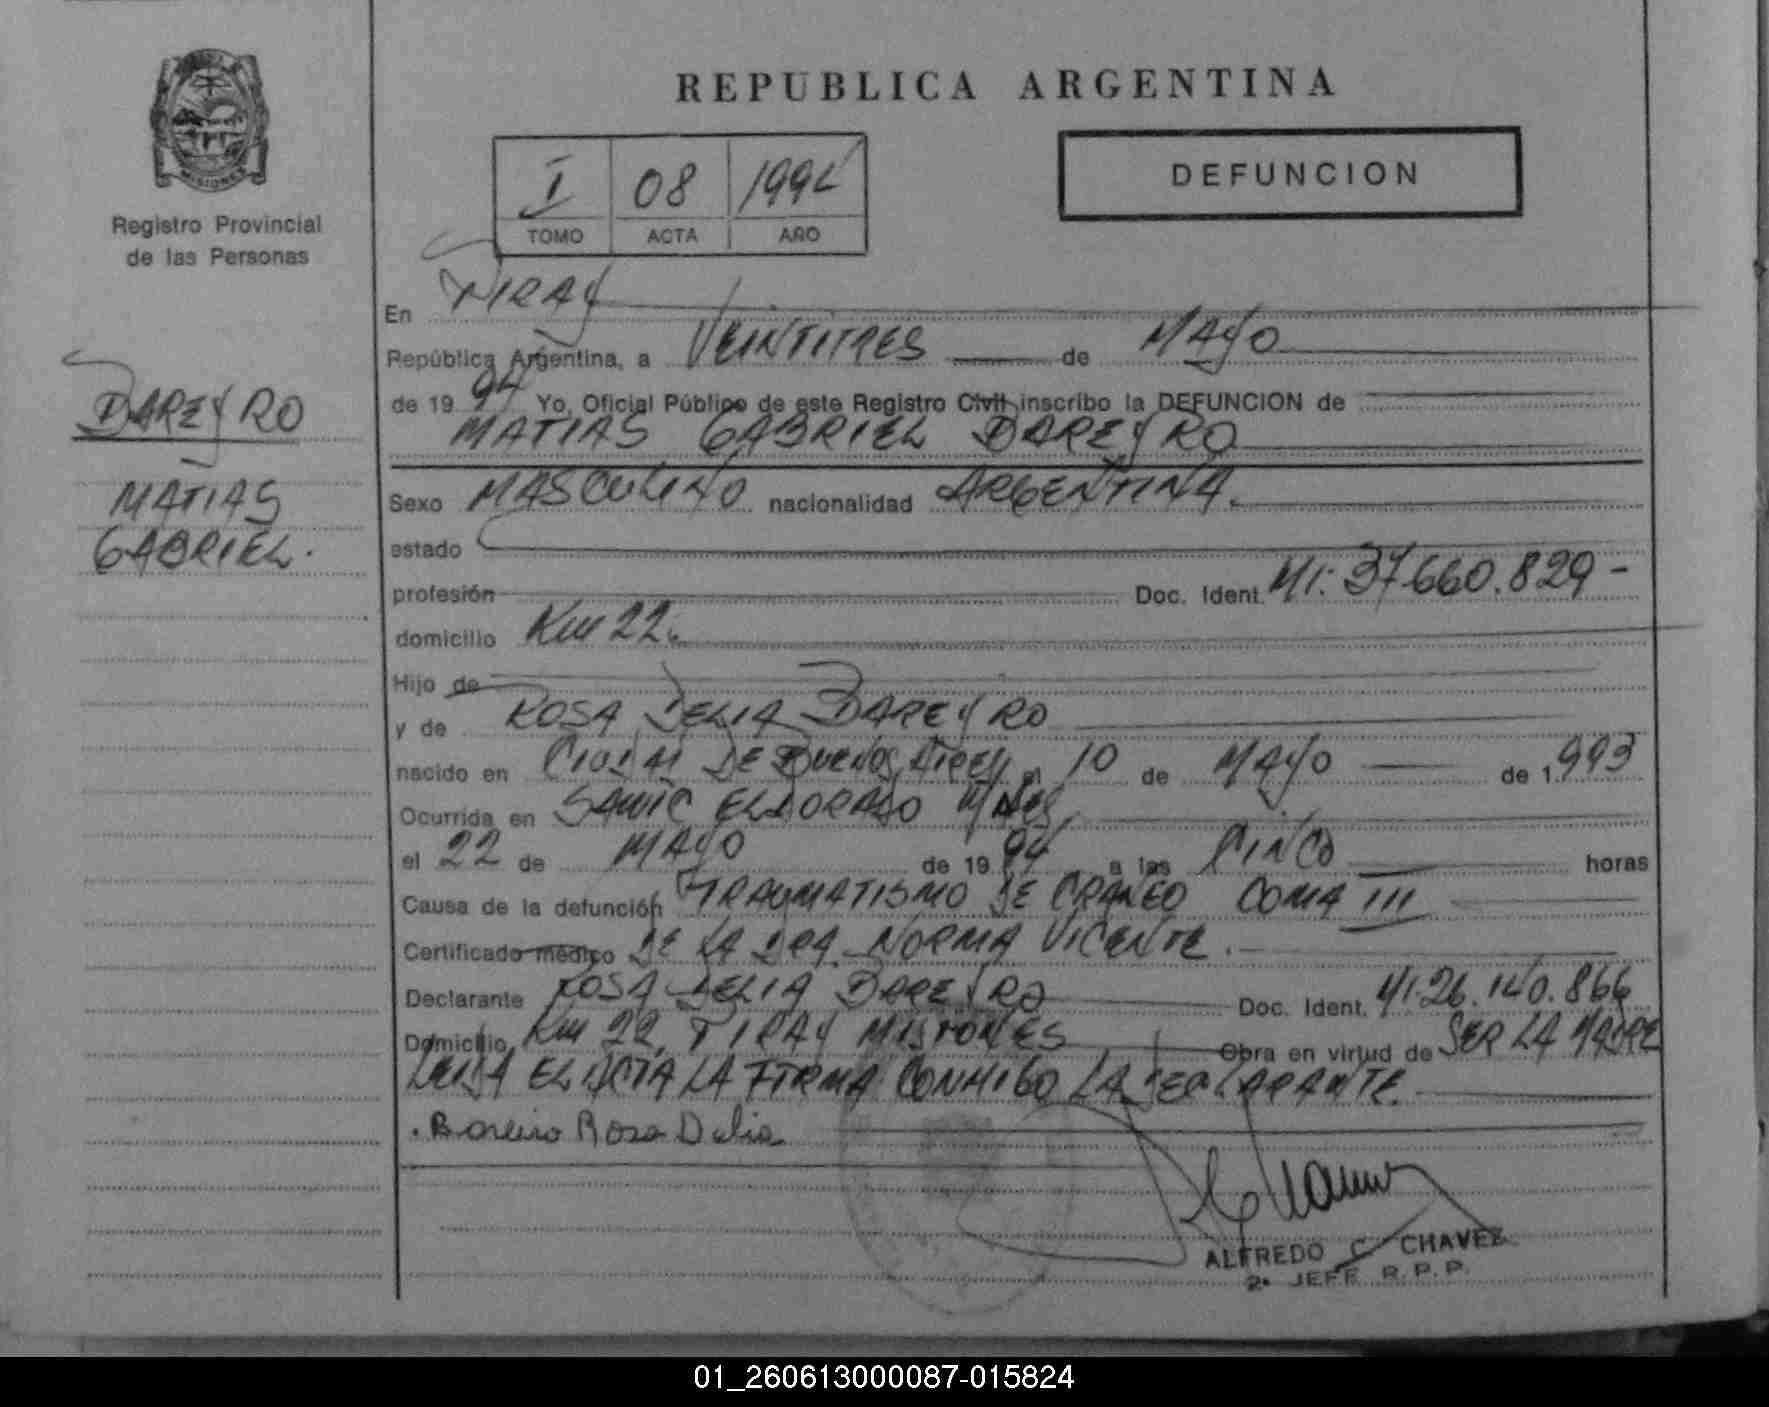 REPUBLICA ARGENTINA
MISIONES
Registro Provincial
de las Personas
I 08 1994
TOMO ACTA AÑO
DEFUNCION
BAREYRO
MATIAS
GABRIEL.
En PIRAY
República Argentina, a VEINTITRES de MAYO
de 19 94 Yo, Oficial Público de este Registro Civil inscribo la DEFUNCION de
MATIAS GABRIEL BAREYRO
Sexo MASCULINO nacionalidad ARGENTINA.
estado
profesión Doc. Ident. MI: 37.660.829-
domicilio Km 22.
Hijo de
y de ROSA DELIA BAREYRO
nacido en CIUDAD DE BUENOS AIRES el 10 de MAYO de 1.993
Ocurrida en SAMIC ELDORADO
el 22 de MAYO de 19 94 a las CINCO horas
Causa de la defunción TRAUMATISMO DE CRANEO COMA III
Certificado médico DE LA DRA. NORMA VICENTE.
Declarante ROSA DELIA BAREYRO Doc. Ident. MI 26.140.866
Domicilio Km 22, PIRAY MISIONES Obra en virtud de SER LA MADRE
LEIDA EL ACTA LA FIRMA CONMIGO LA DECLARANTE.
. Bareiro Rosa Delia
ALFREDO C. CHAVEZ
2º JEFE R.P.P.
01_260613000087-015824